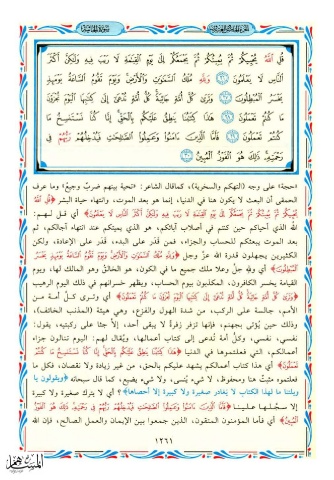 قُلِ اللَّهُ يُحْيِيكُمْ ثُمَّ يُمِيتُكُمْ ثُمَّ يَجْمَعُكُمْ إِلَىٰ يَوْمِ الْقِيَامَةِ لَا رَيْبَ فِيهِ وَلَٰكِنَّ أَكْثَرَ
النَّاسِ لَا يَعْلَمُونَ ﴿٢٦﴾ وَلِلَّهِ مُلْكُ السَّمَاوَاتِ وَالْأَرْضِ وَيَوْمَ تَقُومُ السَّاعَةُ يَوْمَئِذٍ
يَخْسَرُ الْمُبْطِلُونَ ﴿٢٧﴾ وَتَرَىٰ كُلَّ أُمَّةٍ جَاثِيَةً كُلُّ أُمَّةٍ تُدْعَىٰ إِلَىٰ كِتَابِهَا الْيَوْمَ تُجْزَوْنَ
مَا كُنْتُمْ تَعْمَلُونَ ﴿٢٨﴾ هَٰذَا كِتَابُنَا يَنْطِقُ عَلَيْكُمْ بِالْحَقِّ إِنَّا كُنَّا نَسْتَنْسِخُ مَا
كُنْتُمْ تَعْمَلُونَ ﴿٢٩﴾ فَأَمَّا الَّذِينَ آمَنُوا وَعَمِلُوا الصَّالِحَاتِ فَيُدْخِلُهُمْ رَبُّهُمْ فِي
رَحْمَتِهِ ذَٰلِكَ هُوَ الْفَوْزُ الْمُبِينُ ﴿٣٠﴾
«حجة» على وجه (التهكم والسخرية)، كما قال الشاعر: «تحية بينهم ضربٌ وجيع» وما عرف
الحمقى أن البعث لا يكون هنا في الدنيا، إنما هو بعد الموت، وانتهاء حياة البشر ﴿قُلِ اللَّهُ
يُحْيِيكُمْ ثُمَّ يُمِيتُكُمْ ثُمَّ يَجْمَعُكُمْ إِلَىٰ يَوْمِ الْقِيَامَةِ لَا رَيْبَ فِيهِ وَلَٰكِنَّ أَكْثَرَ النَّاسِ لَا يَعْلَمُونَ﴾ أي قل لهم:
الله الذي أحياكم حين كنتم في أصلاب آبائكم، هو الذي يميتكم عند انتهاء آجالكم، ثم
بعد الموت يبعثكم للحساب والجزاء، فمن قَدَر على البدء، قَدَر على الإعادة، ولكن
الكثيرين يجهلون قدرة الله عزَّ وجل ﴿وَلِلَّهِ مُلْكُ السَّمَاوَاتِ وَالْأَرْضِ وَيَوْمَ تَقُومُ السَّاعَةُ يَوْمَئِذٍ يَخْسَرُ
الْمُبْطِلُونَ﴾ أي ولله جلَّ وعلا ملك جميع ما في الكون، هو الخالق وهو المالك لها، ويوم
القيامة يخسر الكافرون، المكذبون بيوم الحساب، ويظهر خسرانهم في ذلك اليوم الرهيب
﴿وَتَرَىٰ كُلَّ أُمَّةٍ جَاثِيَةً كُلُّ أُمَّةٍ تُدْعَىٰ إِلَىٰ كِتَابِهَا الْيَوْمَ تُجْزَوْنَ مَا كُنْتُمْ تَعْمَلُونَ﴾ أي وترى كلَّ أمة من
الأمم، جالسة على الركب، من شدة الهول والفزع، وهي هيئة (المذنب الخائف)،
وذلك حين يُؤتى بجهنم، فإنها تزفر زفرةً لا يبقى أحد، إلاَّ جثا على ركبتيه، يقول:
نفسي، نفسي، وكلُّ أمة تُدعى إلى كتاب أعمالها، ويُقال لهم: اليوم تنالون جزاء
أعمالكم، التي فعلتموها في الدنيا ﴿هَٰذَا كِتَابُنَا يَنْطِقُ عَلَيْكُمْ بِالْحَقِّ إِنَّا كُنَّا نَسْتَنْسِخُ مَا كُنْتُمْ
تَعْمَلُونَ﴾ أي هذا كتاب أعمالكم يشهد عليكم بالحق، من غير زيادة ولا نقصان، فكل ما
فعلتموه مثبتٌ هنا ومحفوظ، لا شيء يُنسى، ولا شيء يضيع، كما قال سبحانه ﴿ويقولون يا
ويلتنا ما لهذا الكتاب لا يغادر صغيرة ولا كبيرة إلا أحصاها﴾؟ أي لا يترك صغيرة ولا كبيرة
إلا سجَّلها علينا ﴿فَأَمَّا الَّذِينَ آمَنُوا وَعَمِلُوا الصَّالِحَاتِ فَيُدْخِلُهُمْ رَبُّهُمْ فِي رَحْمَتِهِ ذَٰلِكَ هُوَ الْفَوْزُ
الْمُبِينُ﴾ أي فأما المؤمنون المتقون، الذين جمعوا بين الإيمان والعمل الصالح، فإن الله
١٢٦١